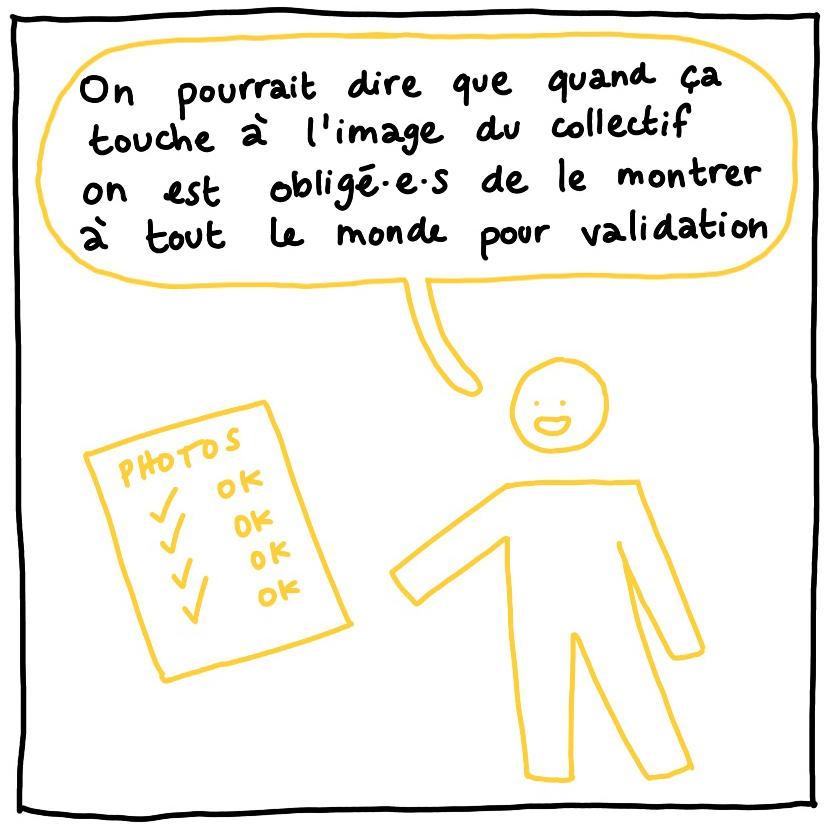 On pourrait dire que quand ça
touche à l'image du collectif
on est obligé·e·s de le montrer
à tout le monde pour validation
PHOTOS
✓ OK
✓ OK
✓ OK
✓ OK